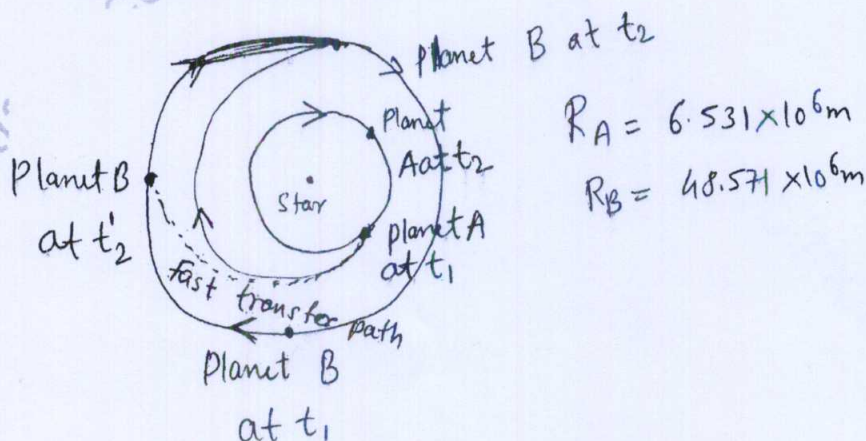 Planet B at t2
Planet
A at t2
RA = 6.531 × 10^6 m
RB = 48.571 × 10^6 m
Planet B
at t'2
Star
Planet A
at t1
fast transfer path
Planet B
at t1